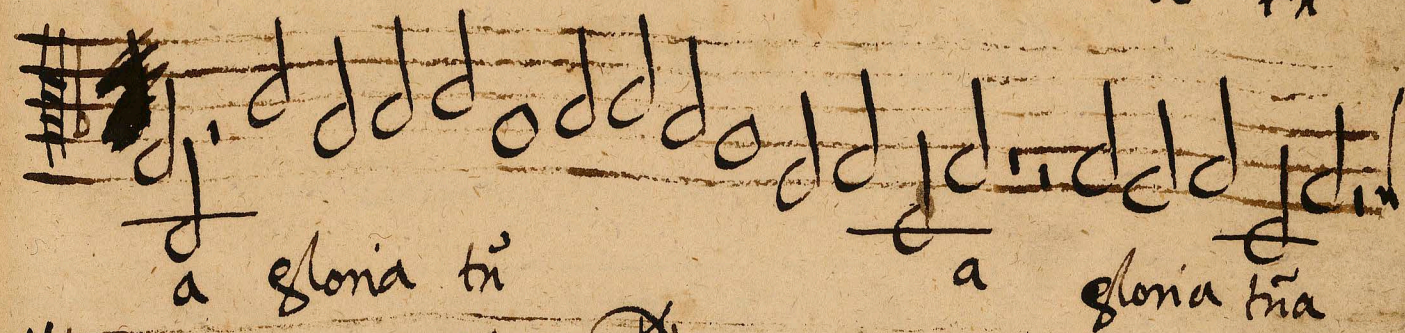 a gloria tũ a gloria tũa